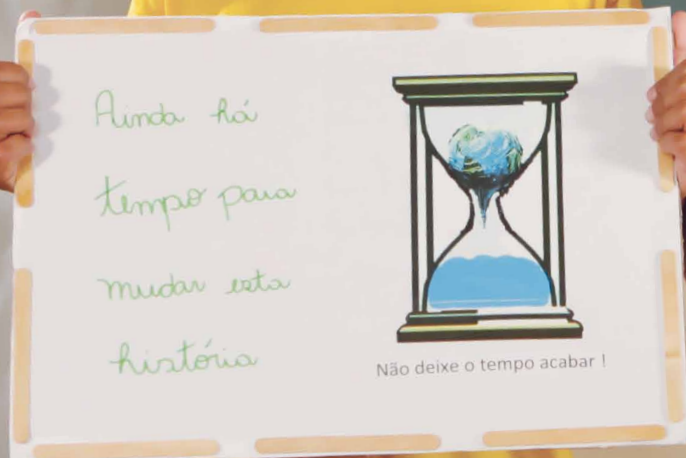 Ainda há
tempo para
mudar esta
história
Não deixe o tempo acabar !